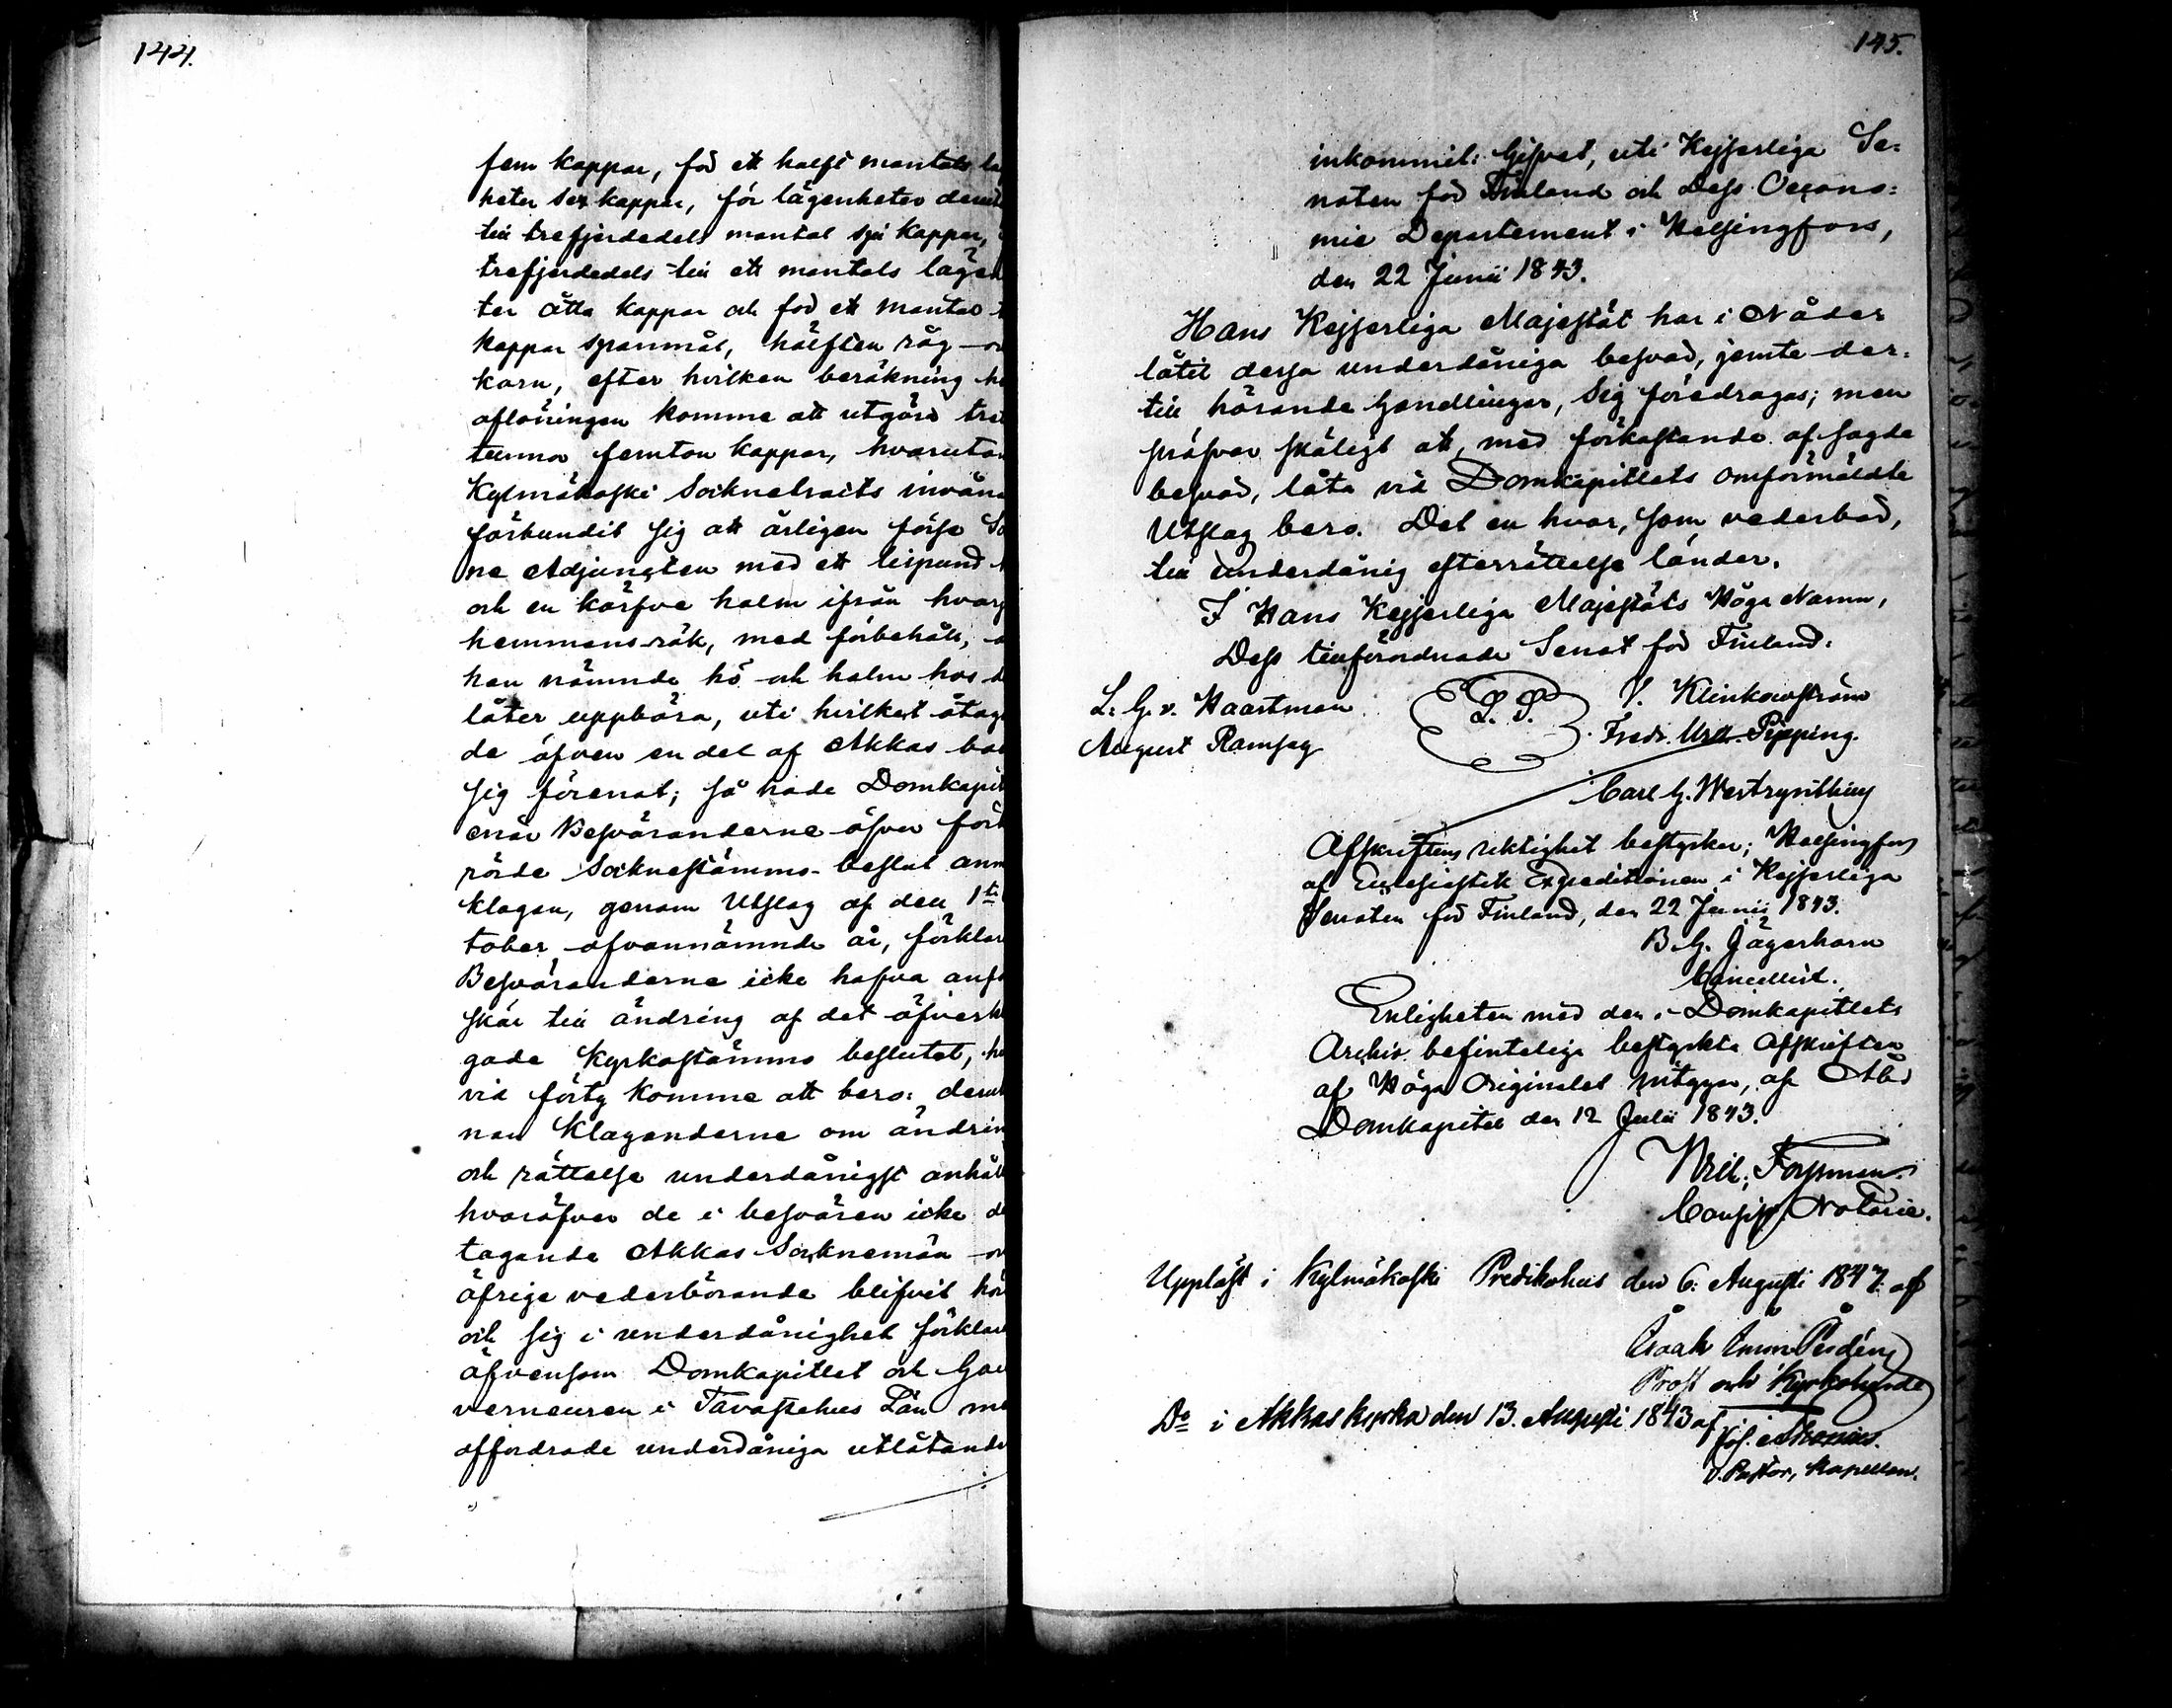 144.
fem kappar, för ett halft mantals lä
heter sex kappar, för lägenheter derut
till trefjerdedels mantal sju kappar,
trefjerdedels till ett mantals lägen
ter åtta kappar och för ett mantal
kappar spanmål, hälften råg o
korn, efter hvilken beräkning
aflöningen komme att utgöra tret
tunnor femton kappar, hvarutan
Kylmäkoski Socknetracts invån
förbundit sig att årligen förse So
ne Adjuncten med ett lispund
och en kärfve halm ifrån hvarj
hemmans-rök, med förbehåll, a
han nämnde hö och halm hos d
låter uppbära, uti hvilket åtag
de äfven en del af Akkas bo
sig förenat; så hade Domkapit
enär Besväranderne öfver förb
rörde Socknestämmo-beslut anm
klagan, genom Utslag af den 1ste
tober ofvannämnde år, förklar
Besväranderne icke hafva anf
skäl till ändring af det öfverkl
gade Kyrkostämmo beslutet, hv
vid förty komme att bero: derut
nan Klaganderne om ändrin
och rättelse underdånigst anhåll
hvaröfver de i besvären icke de
tagande Akkas Sockenmän o
öfrige vederbörande blifvit hör
och sig i underdånighet förklar
äfvensom Domkapitlet och Gou
verneuren i Tavastehus Län me
affordrade underdåniga utlåtande
145.
inkommit: Gifvet, uti Kejserliga Se-
naten för Finland och Dess Oecono-
mie Departement i Helsingfors,
den 22 Junii 1843.
Hans Kejserliga Majestät har i Nåder
låtit dessa underdåniga besvär, jemte der-
till hörande handlingar, Sig föredragas; men
pröfvar skäligt att, med förkastande af sagde
besvär, låta vid Domkapitlets omförmäldte
Utslag bero. Det en hvar, som vederbör,
till underdånig efterrättelse länder.
I Hans Kejserliga Majestäts Höga Namn,
Dess tillförordnade Senat för Finland:
L. G. v. Haartman
L. S.
Klinkowström
August Ramsay
Fredr. Wilh. Pipping.
Carl G.
Afskriftens riktighet bestyrker; Helsingfors
af Ecclesiastik Expeditionen i Kejserliga
Senaten för Finland, den 22 Junii 1843.
B. G. Jägerhorn
Cancellist.
Enligheten med den i Domkapitlets
Archiv befintelige bestyrkte Afskriften
af Höga Originalet vitsgga, af Åbo
Domkapitel den 12 Julii 1843.
Wilh. Forssman.
Consist. Notarie.
Uppläst i Kylmäkoski Predikohus den 6. Augusti 1843. af
Prost och Kyrkoherde
Do i Akkas kyrka den 13. Augusti 1843 af
v. Pastor, Kapellan.